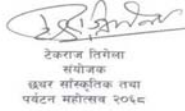 टेकराज तिगेला
संयोजक
छथर साँस्कृतिक तथा
पर्यटन महोत्सव २०६८